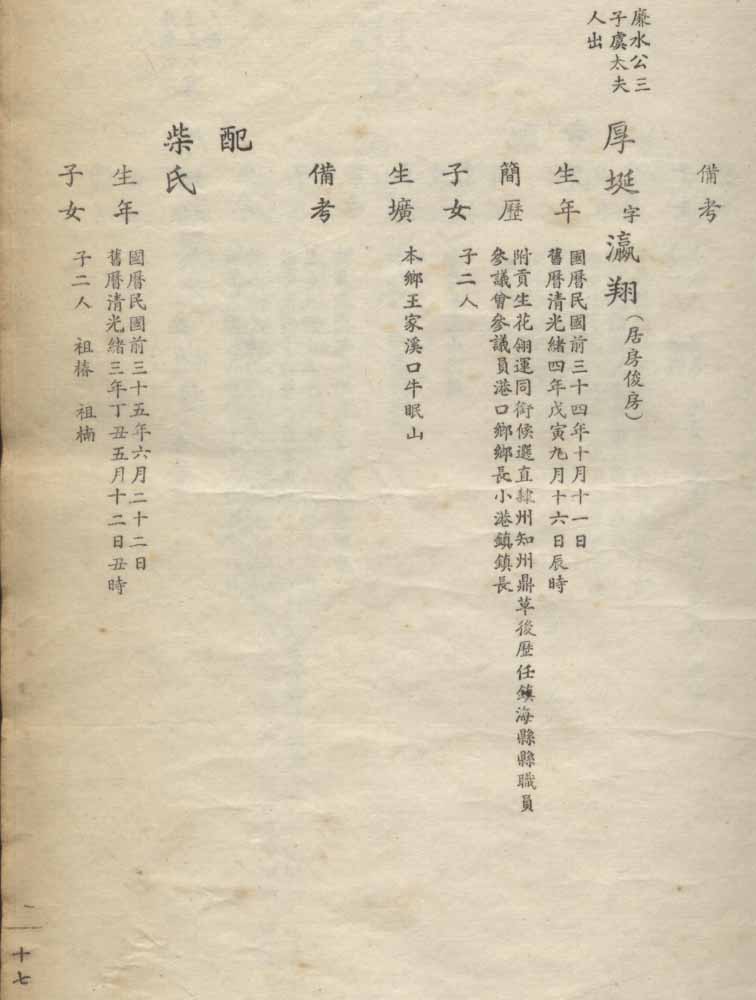 備考
廉水公三
子虞太夫
人出
厚埏字瀛翔（居房俊房）
生年
國曆民國前三十四年十月十一日
舊曆清光緒四年戊寅九月十六日辰時
簡歷
附貢生花翎運同銜候選直隸州知州鼎革後歷任鎮海縣縣職員
參議會參議員港口鄉鄉長小港鎮鎮長
子女
子二人
生壙
本鄉王家溪口牛眠山
備考
配
柴氏
生年
國曆民國前三十五年六月二十二日
舊曆清光緒三年丁丑五月十二日丑時
子女
子二人 祖椿 祖楠
十七